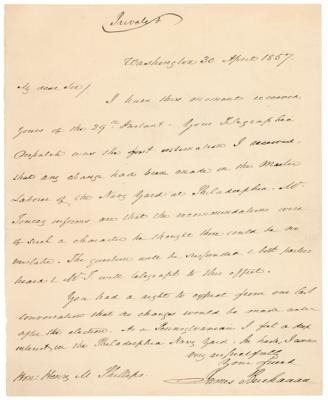 Private
Washington 30 April 1857.
My dear Sir/
I have this moment received
yours of the 29th Instant. Your Telegraphic
Despatch was the first information I received
that any change had been made in the Master
Laborer of the Navy Yard at Philadelphia. Mr.
Toucey informs me that the recommendations were
of such a character he thought there could be no
mistake. The question will be suspended & both parties
heard & Mr. T will telegraph to this effect.
You had a right to expect from our last
conversation that no changes would be made until
after the election. As a Pennsylvanian I feel a deep
interest in the Philadelphia Navy Yard. In haste, I remain
very respectfully
Your friend
James Buchanan
Hon: Henry M. Phillips